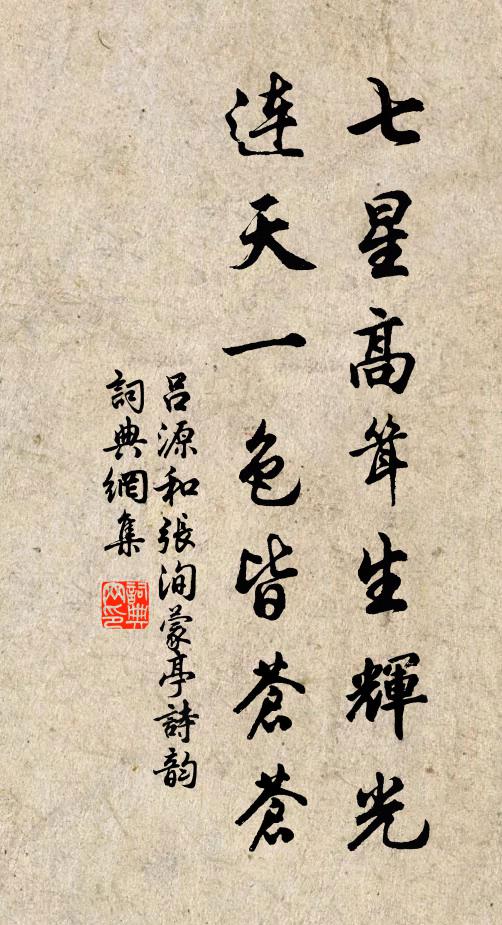 七星高耸生輝光
連天一色皆蒼蒼
吕源和張洵蒙亭詩韵
詞典網集
詞典
网印